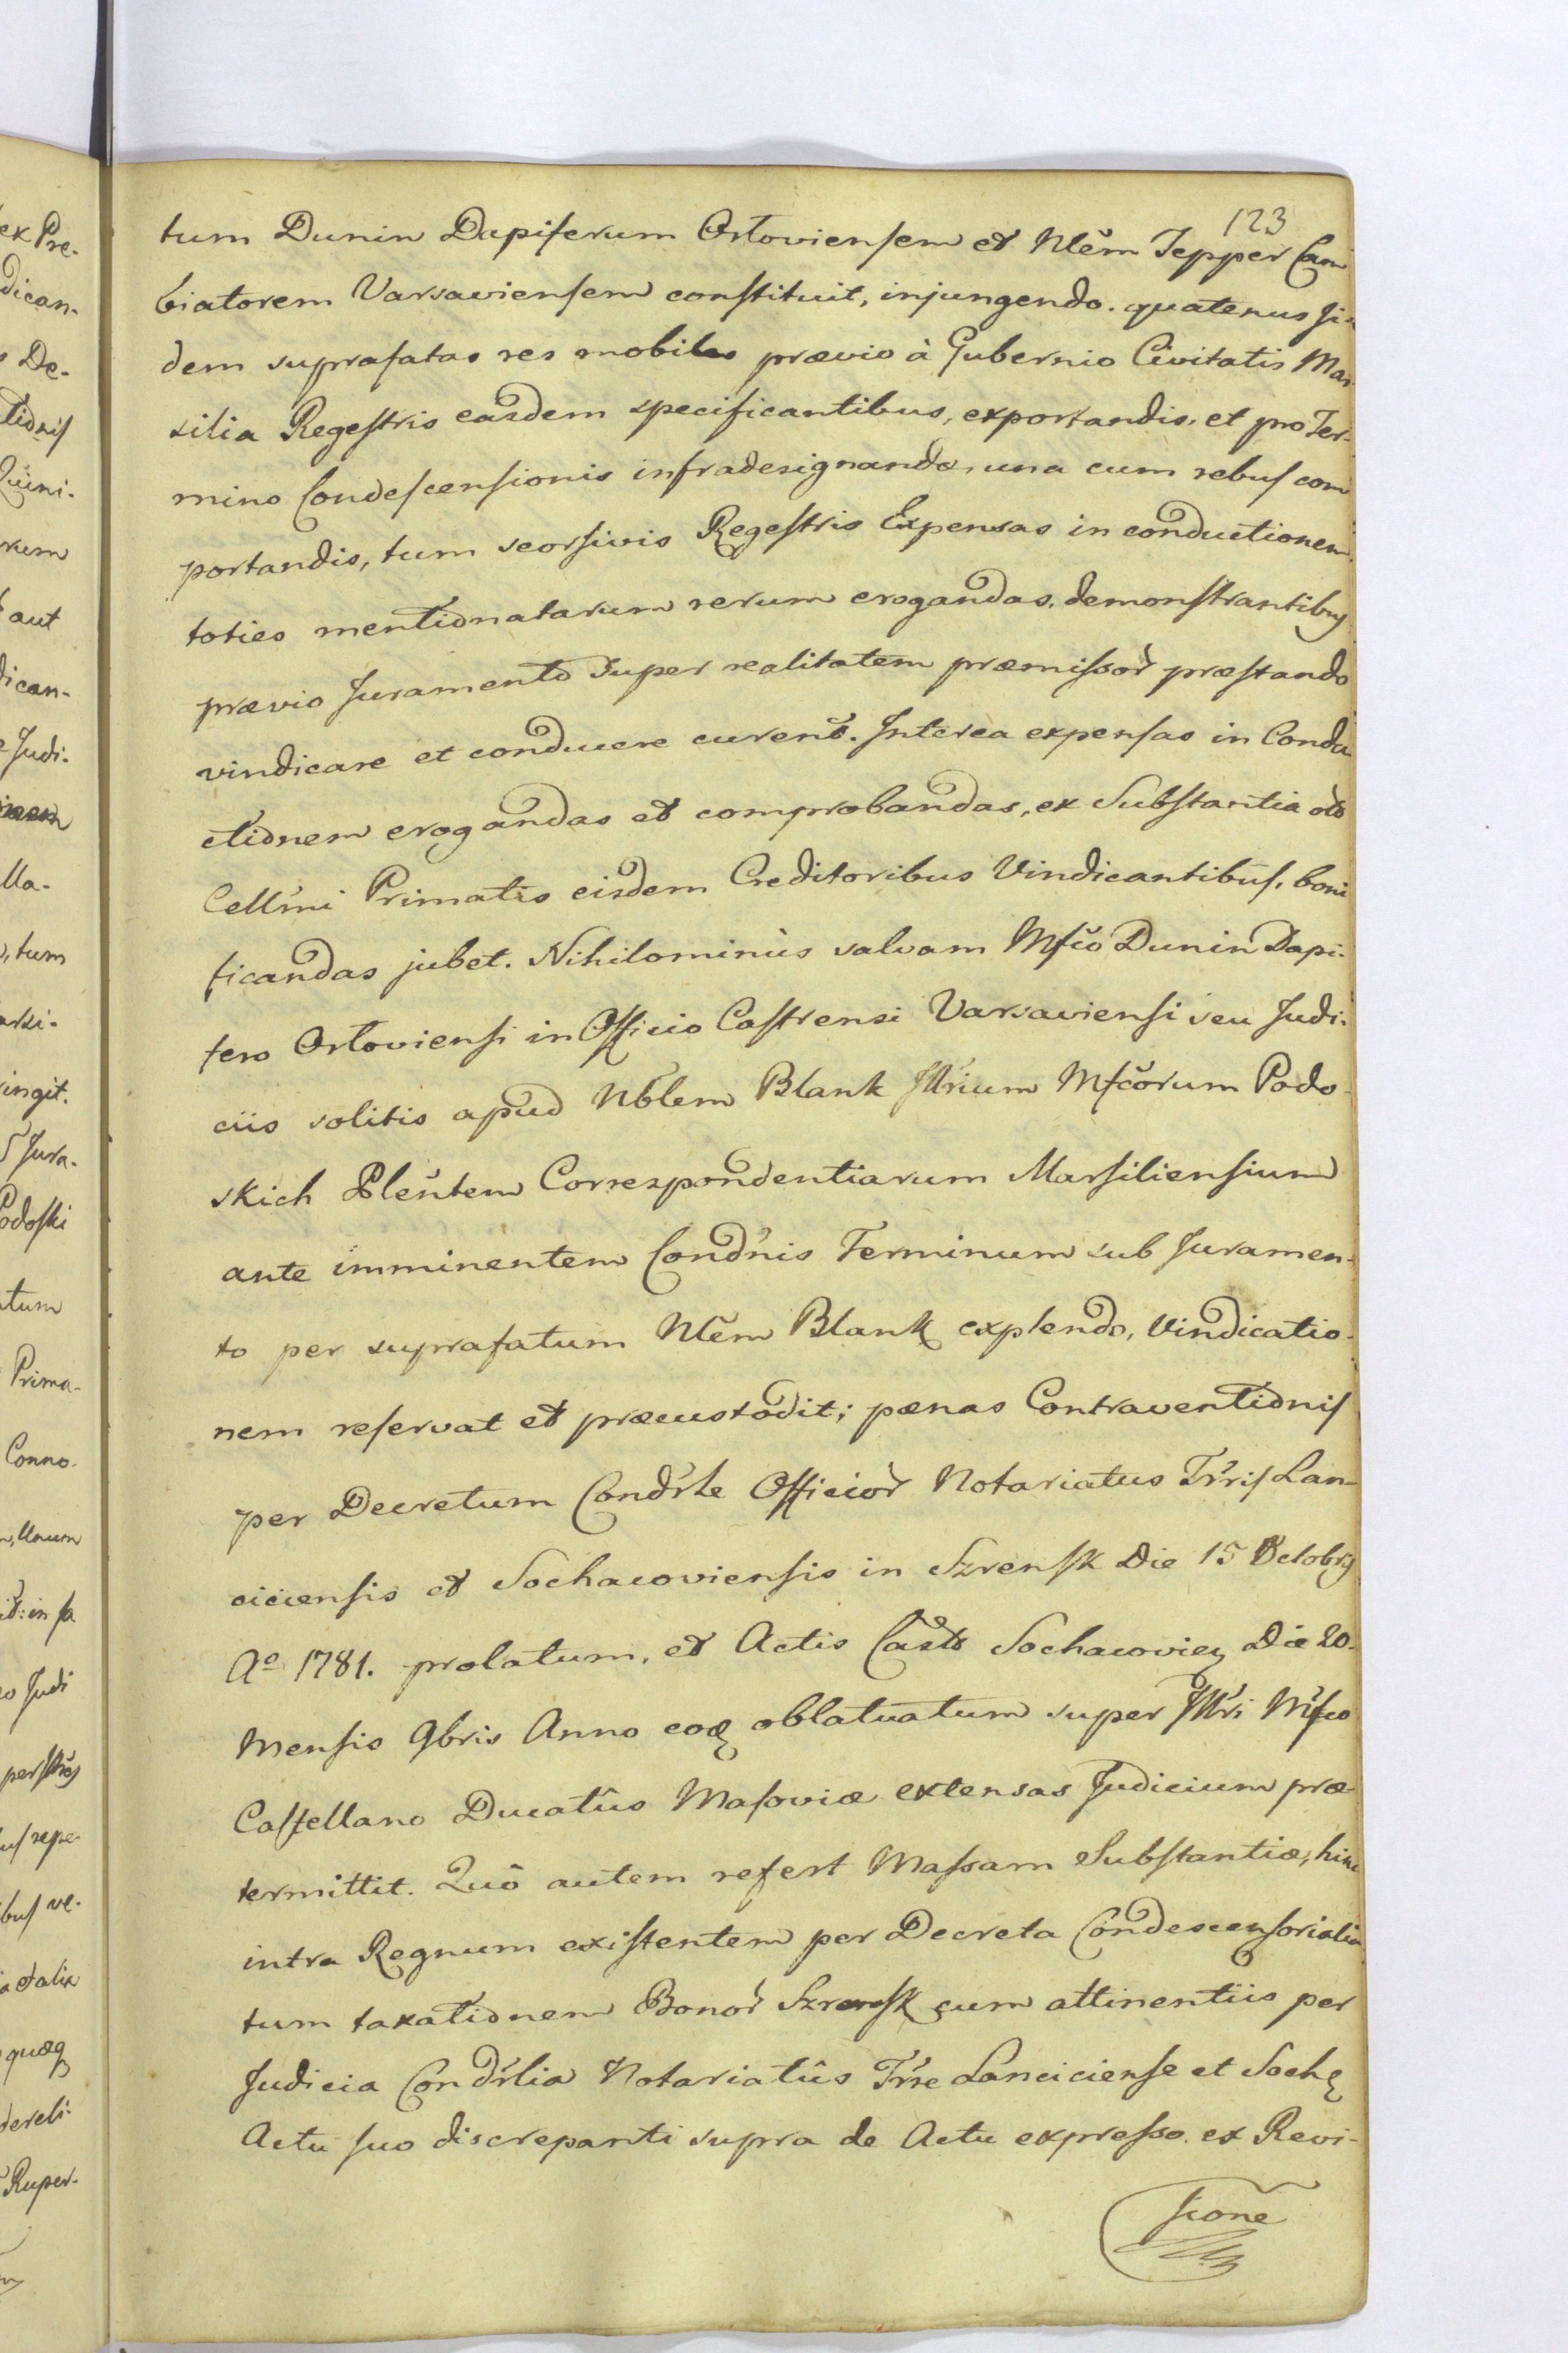 123
tum Dunin Dapiferum Ostoviensem et Nlem Tepper Cam
biatorem Varsaviensem constituit, injungendo. quatenus ji-
dem suprafatas res mobiles prævio à Gubernio Civitatis Mar-
silia Regestris easdem specificantibus, exportandis, et pro Ter-
mino Condescensionis infradesignando, una cum rebus com
portandis, tum seorsivis Regestris Expensas in conductionem
toties mentionatarum rerum erogandas, demonstrantibus
prævio Juramento super realitatem præmissor præstando
vindicare et conducere curent. Interea expensas in Condu
ctionem erogandas et comprobandas, ex Substantia olb
Cellmi Primatis eisdem Creditoribus Vindicantibus, boni
ficandas jubet. Nihilominùs salvam Mfco Dunin Dapi-
fero Ostoviensi in Officio Castrensi Varsaviensi seu Judi-
ciis solitis apud Nblem Blank Illrium Mfcorum Podo-
skich Plentem Correspondentiarum Marsiliensium
ante imminentem Condnis Terminum sub Juramen-
to per suprafatum Nlem Blank explendo, Vindicatio-
nem reservat et præcustodit; pænas Contraventionis
per Decretum Condrle Officior Notariatus Trris Lan-
ciciensis et Sochacoviensis in Szrensk Die 15 Octobris
Ao 1781. prolatum, et Actis Castr Sochacovien Die 20.
Mensis 9bris Anno eoq oblatuatum super Illri Mfco
Castellano Ducatûs Masoviæ extensas Judicium præ-
termittit. Quô autem refert Massam Substantiæ, hinc
intra Regnum existentem per Decreta Condescensorialia
tum taxationem Bonor Szrensk cum attinentiis per
Judicia Condrlia Notariatûs Trræ Lanciciense et Soch
Actu suo discrepanti supra de Actu expresso. ex Revi-
sione